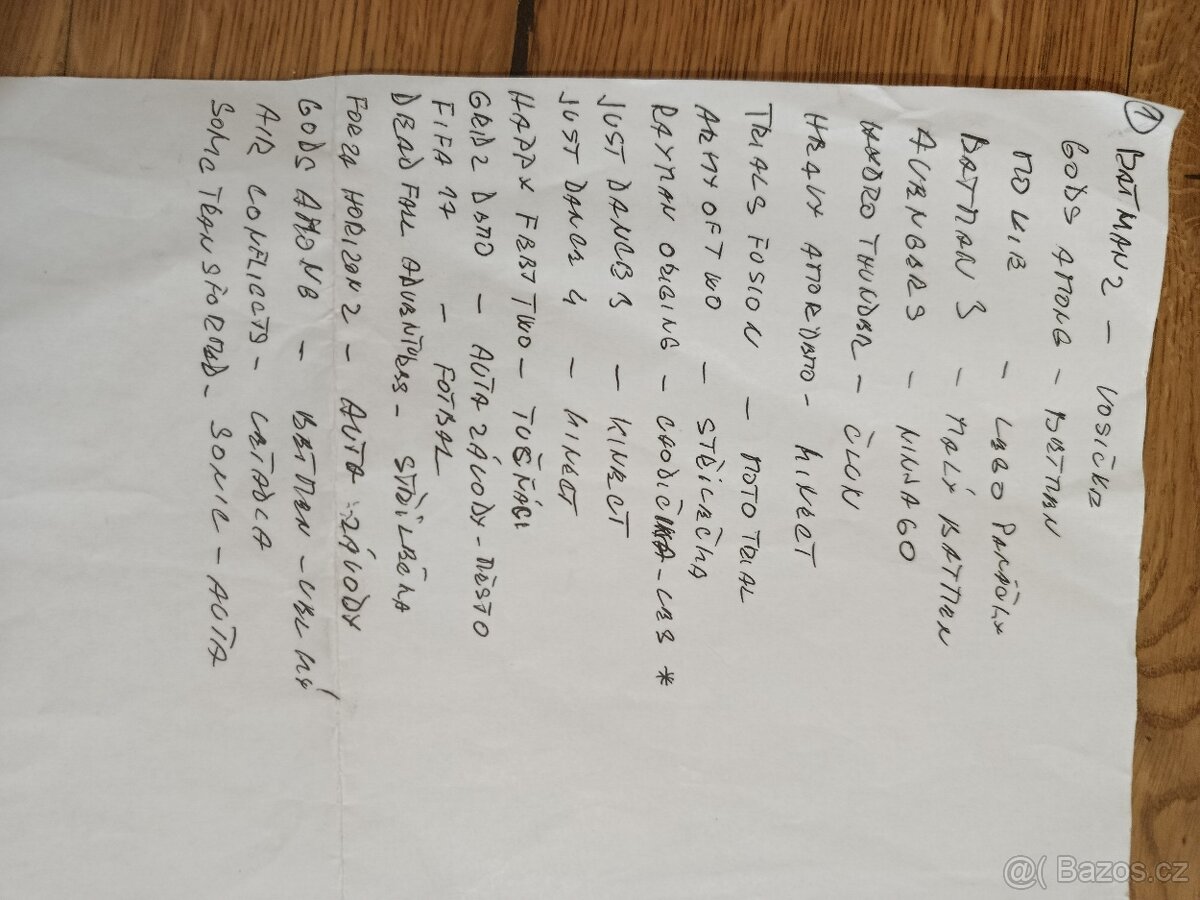 1
BATMAN 2 - VOSIČKE
GODS AMONG - BETMEN
MOVIE - LEGO PANÁČKY
BATMAN 3 - MALÝ BATMEN
AVENGERS - NINNAGO
HYDRO THUNDER - ČLUN
HEAVY - KINECT
TRIALS FUSION - MOTO TRIAL
ARMY OF TWO - STŘÍLEČKA
RAYMAN ORIGINS - CHODIČKA - LES *
JUST DANCE 3 - KINECT
JUST DANCE 4 - KINECT
HAPPY FEET TWO - TUČŇÁCI
GRID 2 DEMO - AUTA ZÁVODY - MĚSTO
FIFA 17 - FOTBAL
DEADFALL ADVENTURES - STŘÍLEČKA
FORZA HORIZON 2 - AUTA ZÁVODY
GODS AMONG - BETMEN - VELKÝ
AIR CONFLICTS - LETADLA
SONIC TRANSFORMED - SONIC - AUTA
@( Bazos.cz